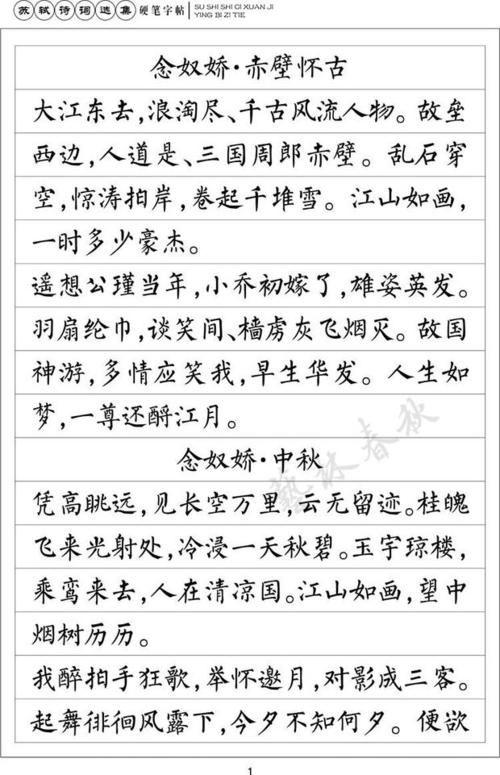 苏轼诗词选集 硬笔字帖 SU SHI SHI CI XUAN JI
YING BI ZI TIE
念奴娇·赤壁怀古
大江东去,浪淘尽、千古风流人物。故垒
西边,人道是、三国周郎赤壁。乱石穿
空,惊涛拍岸,卷起千堆雪。江山如画,
一时多少豪杰。
遥想公瑾当年,小乔初嫁了,雄姿英发。
羽扇纶巾,谈笑间、樯虏灰飞烟灭。故国
神游,多情应笑我,早生华发。人生如
梦,一尊还酹江月。
念奴娇·中秋
凭高眺远,见长空万里,云无留迹。桂魄
飞来光射处,冷浸一天秋碧。玉宇琼楼,
乘鸾来去,人在清凉国。江山如画,望中
烟树历历。
我醉拍手狂歌,举怀邀月,对影成三客。
起舞徘徊风露下,今夕不知何夕。便欲
藝林春秋
1